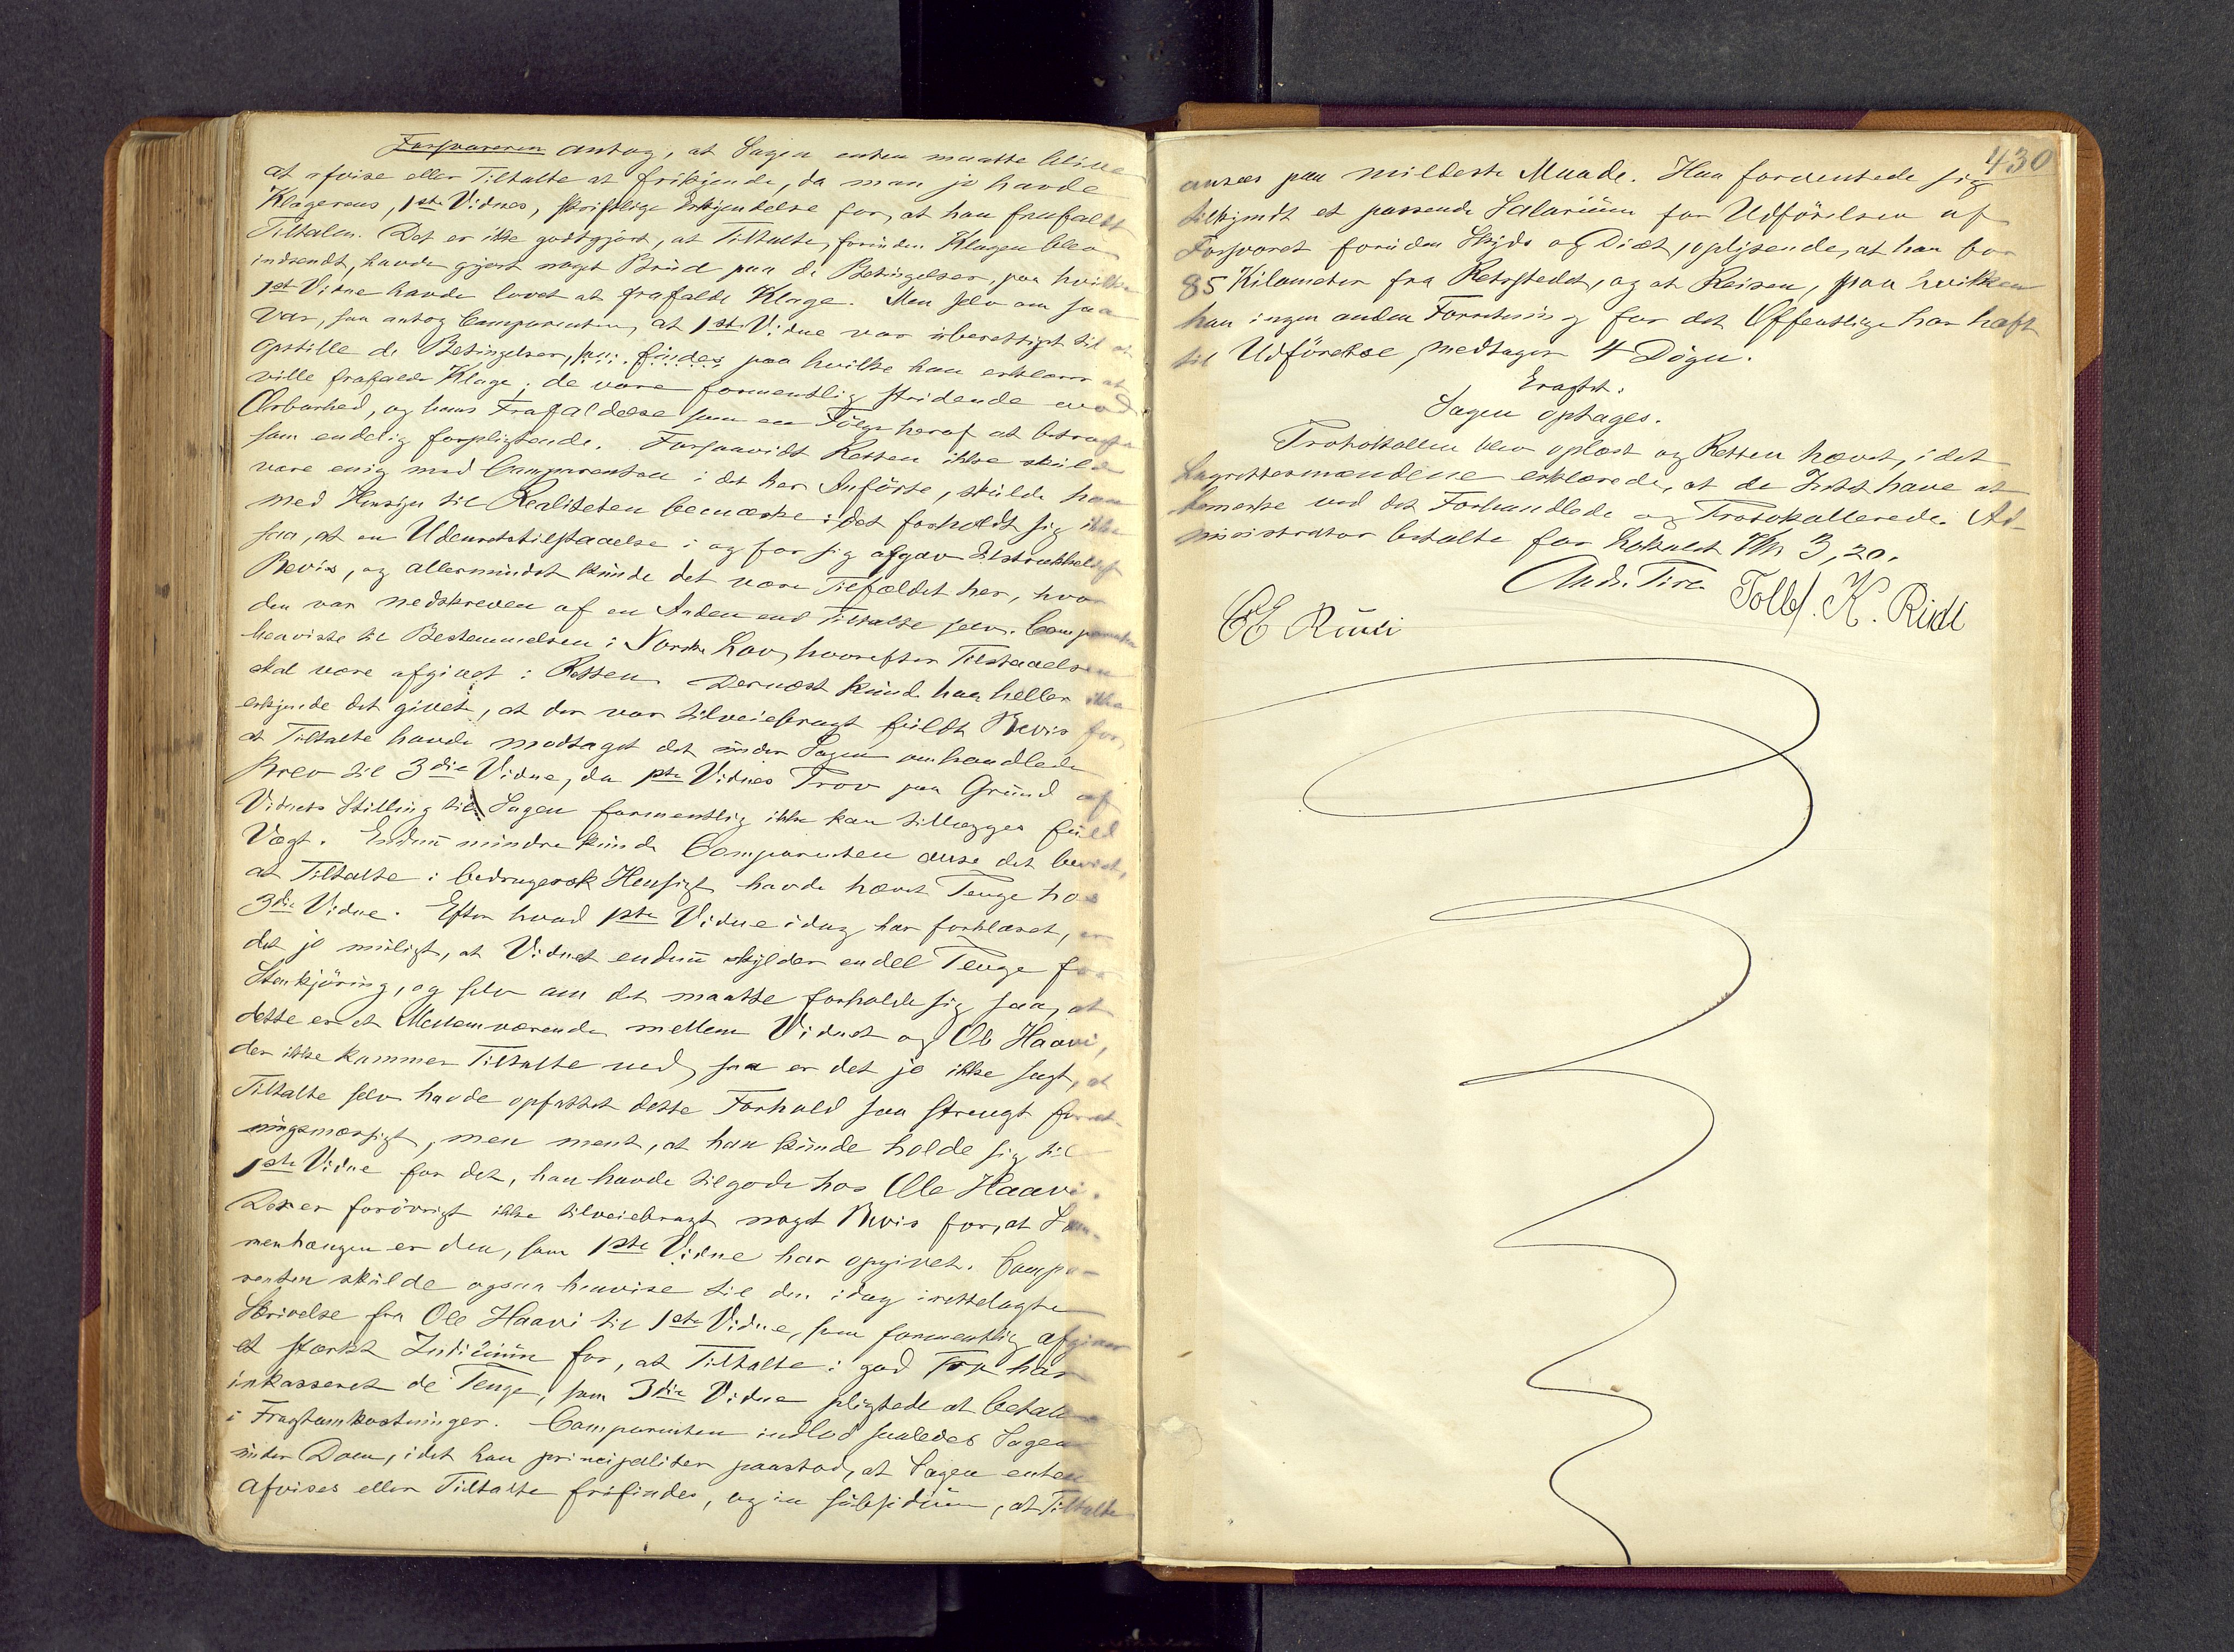 Forsvareren antog, at Sagen enten maatte blive
at afvise eller Tiltalte at frikjende, da man jo havde
Klagerens, 1ste Vidnes, skriftlige Erkjendelse for, at han frafaldt
Tiltalen. Det er ikke godtgjort, at Tiltalte, forinden Klagen blev
indsendt, havde gjort noget Brud paa de Betingelser, paa hvilke
1st Vidne havde lovet at frafalde Klage. Men selv om saa
var, saa antog Comparenten, at 1ste Vidne var uberettiget til at
opstille de Betingelser, paa hvilke han erklærer at
ville frafalde Klage; de vare formentlig stridende mod
Ærbarhed, og hans Frafaldelse som en Følge heraf at betragte
som endelig forpligtende. Forsaavidt Retten ikke skulde
være enig med Comparenten i det her Anførte, skulde han
med Hensyn til Realiteten bemærke: det forholdt sig ikke
saa, at en Udenretstilstaaelse i og for sig afgav tilstrækkeligt
Bevis, og allermindst kunde det være Tilfældet her, hvor
den var nedskreven af en Anden end Tiltalte selv. Comparenten
henviste til Bestemmelsen i Norske Lov, hvorefter Tilstaaelsen
skal være afgivet i Retten. Dernæst kunde han heller ikke
erkjende det givet, at der var tilveiebragt fuldt Bevis for,
at Tiltalte havde modtaget det under Sagen omhandlede
Brev til 3die Vidne, da 1ste Vidnes Prov paa Grund af
Vidnets Stilling til Sagen formentlig ikke kan tillægges fuld
Vægt. Endnu mindre kunde Comparenten anse det bevist,
at Tiltalte i bedragersk Hensigt havde hævet Penge hos
3die Vidne. Efter hvad 1ste Vidne idag har forklaret, er
det jo muligt, at Vidnet endnu skylder endel Penge for
Stenkjøring, og selv om det maatte forholde sig saa, at
dette er et Mellemværende mellem Vidnet og Ole Haavi,
der ikke kommer Tiltalte ved, saa er det jo ikke sagt, at
Tiltalte selv havde opfattet dette Forhold saa strengt forret-
ningsmæssigt, men ment, at han kunde holde sig til
1ste Vidne for det, han havde tilgode hos Ole Haavi.
Der er forøvrigt ikke tilveiebragt noget Bevis for, at Sam-
menhængen er den, som 1ste Vidne har opgivet. Compa-
renten skulde ogsaa henvise til den idag irettelagte
Skrivelse fra Ole Haavi til 1ste Vidne, som formentlig afgiver
et stærkt Indicium for, at Tiltalte i god Tro har
inkasseret de Penge, som 3die Vidne pligtede at betale
i Fragtomkostninger. Comparenten indlod saaledes Sagen
under Dom, idet han principaliter paastod, at Sagen enten
afvises eller Tiltalte frifindes, og in subsidium, at Tiltalte
430
ansees paa mildeste Maade. Han forventede sig
tilkjendt et passende Salarium for Udførelsen af
Forsvaret foruden Skyds og Diæt, oplysende, at han bor
85 Kilometer fra Retsstedet, og at Reisen, paa hvilken
han ingen anden Forretning for det Offentlige har havt
til Udførelse, medtager 4 Døgn.
Eragtet:
Sagen optages.
Protokollen blev oplæst og Retten hævet, idet
Lagrettesmændene erklærede, at de Intet have at
bemerke ved det Forhandlede og Protokollerede. Ad-
ministrator betalte for Lokalet Kr 3,20.
Tollf. K. Rudi
EE Rudi